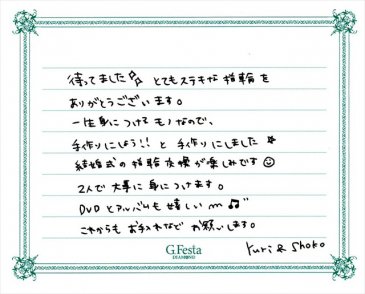 待ってました✨ とてもステキな指輪を
ありがとうございます。
一生身につけるモノなので、
手作りにしよう!! と手作りにしました★
結婚式の指輪交換が楽しみです☺
2人で大事に身につけます。
DVDとアルバムも嬉しい m♫
これからもお手入れなどお願いします。
G.Festa
DIAMOND
Yuri & Shoko